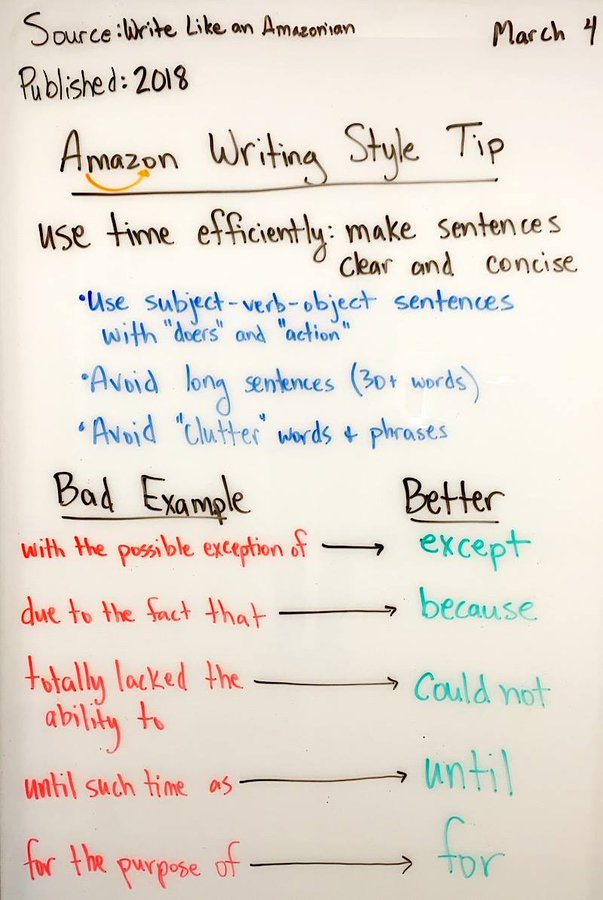 Source: Write Like an Amazonian
March 4
Published: 2018
Amazon Writing Style Tip
use time efficiently: make sentences
clear and concise
•Use subject-verb-object sentences
with "doers" and "action"
•Avoid long sentences (30+ words)
•Avoid "clutter" words + phrases
Bad Example
Better
with the possible exception of → except
due to the fact that → because
totally lacked the → Could not
ability to
until such time as → until
for the purpose of → for